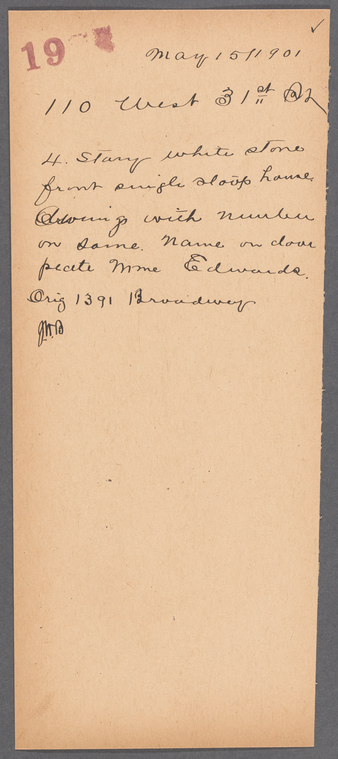 19
May 15/1901
110 West 31st St
4. Story white stone
front single stoop house.
Awnings with number
on same. Name on door
plate Mme Edwards.
Orig 1391 Broadway